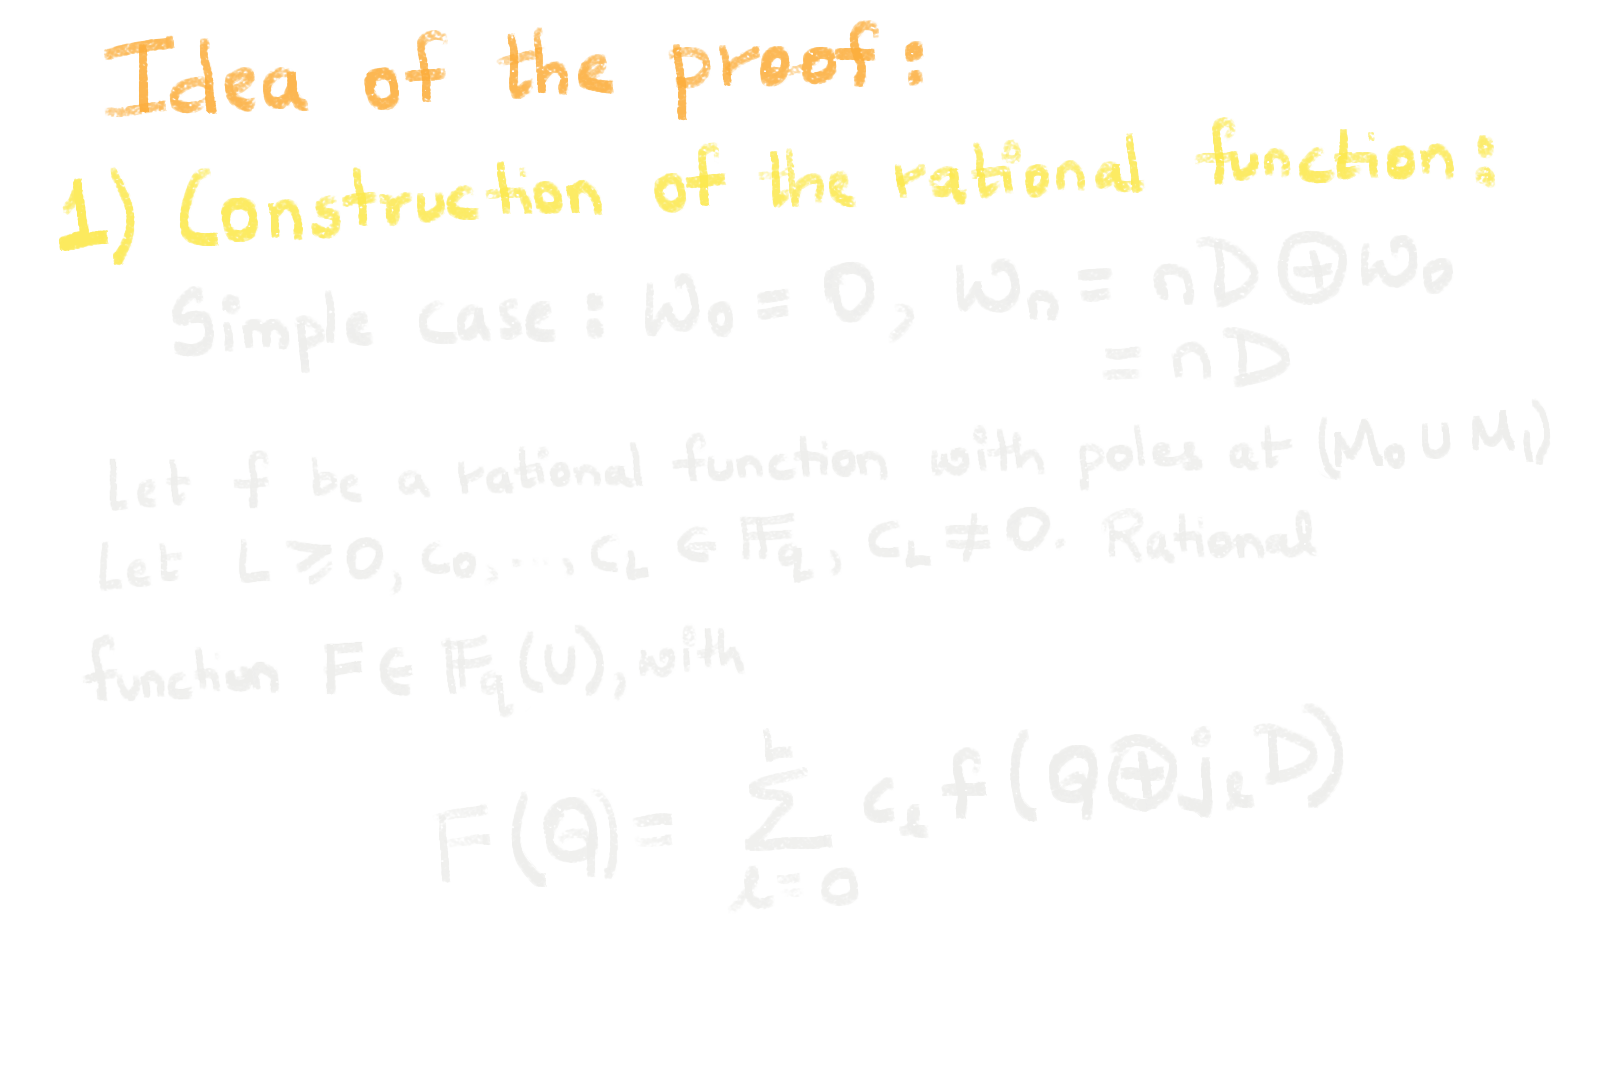 Idea of the proof:
1) Construction of the rational function:
Simple case: W₀ = O, Wₙ = nD ⊕ W₀
= nD
Let f be a rational function with poles at (M₀ ∪ M₁)
Let L ≥ 0, c₀, ..., c_L ∈ 𝔽_q, c_L ≠ 0. Rational
function F ∈ 𝔽_q(U), with
F(Q) = ∑_{l=0}^{L} c_l f(Q ⊕ j_l D)